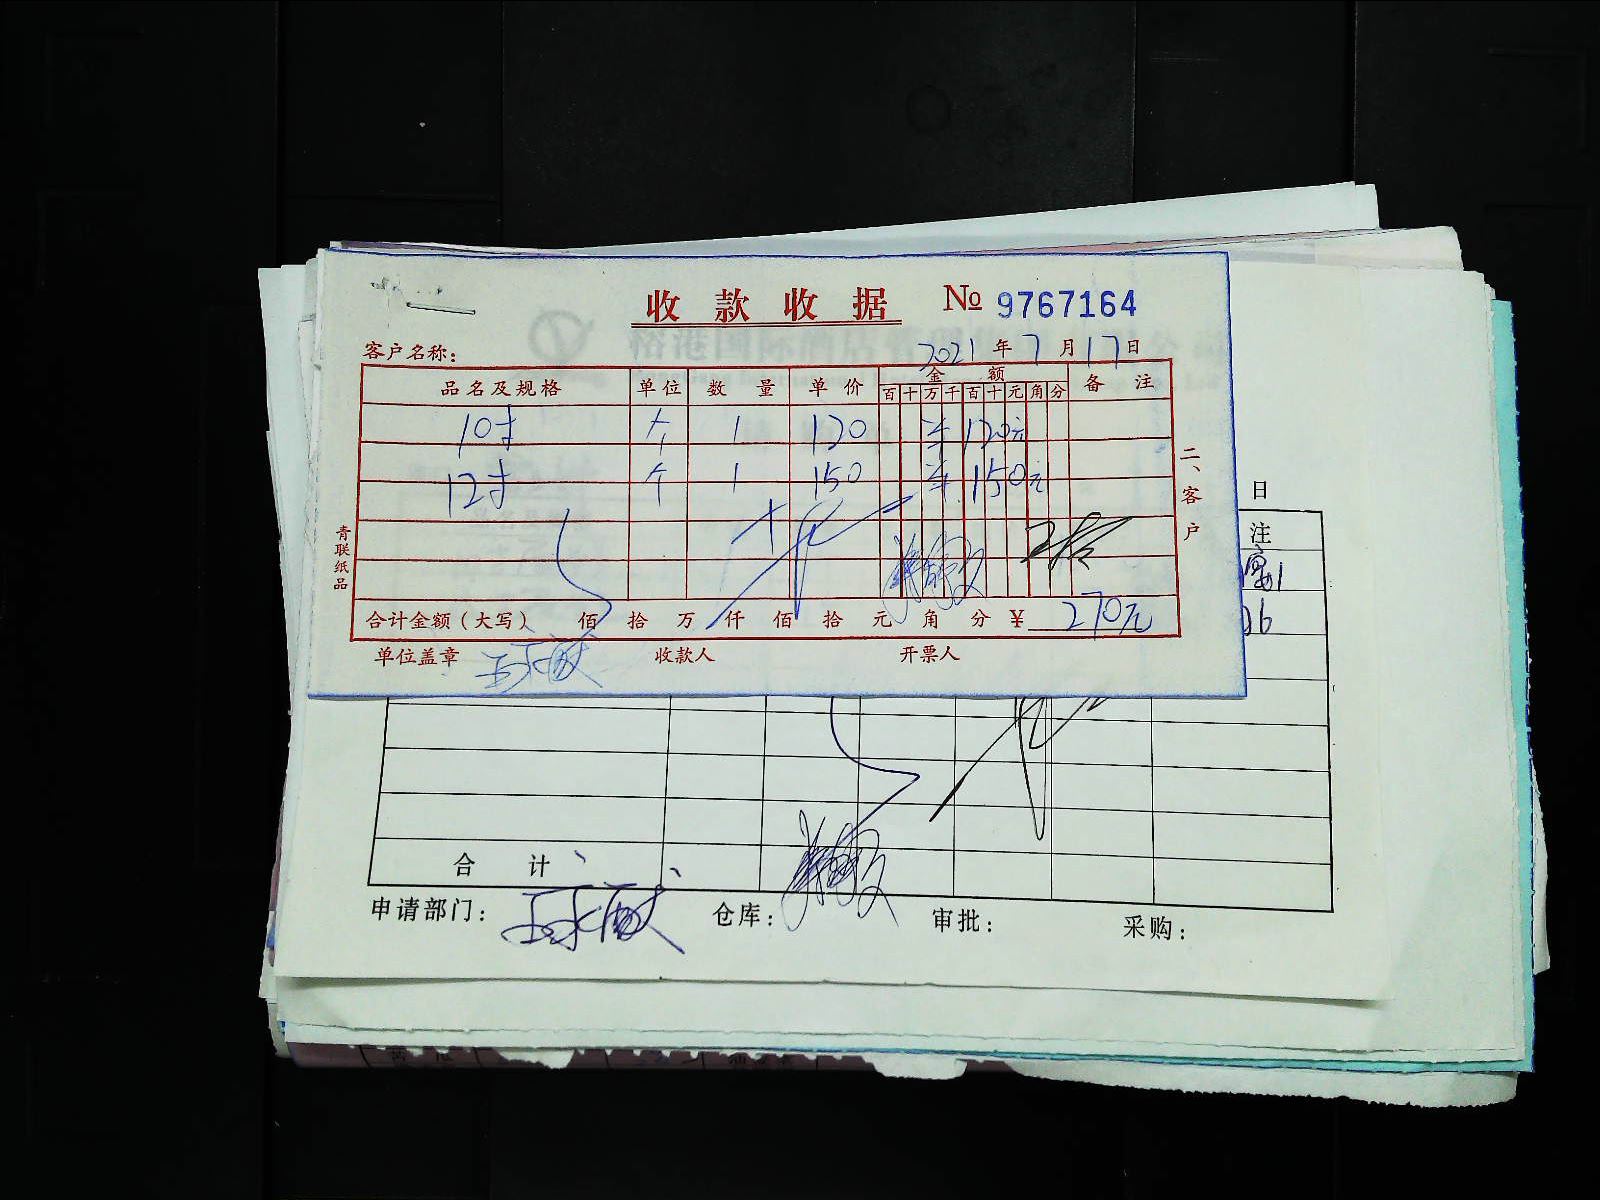 收款收据 № 9767164
客户名称： 2021年7月17日
品名及规格 单位 数量 单价 金额 备注
百十万千百十元角分
10寸 个 1 120 ¥120元
12寸 个 1 150 ¥150元
合计金额（大写） 佰 拾 万 仟 佰 拾 元 角 分 ¥ 270元
单位盖章 收款人 开票人
二、客户
青联纸品
日
注
合计
申请部门： 仓库： 审批： 采购：